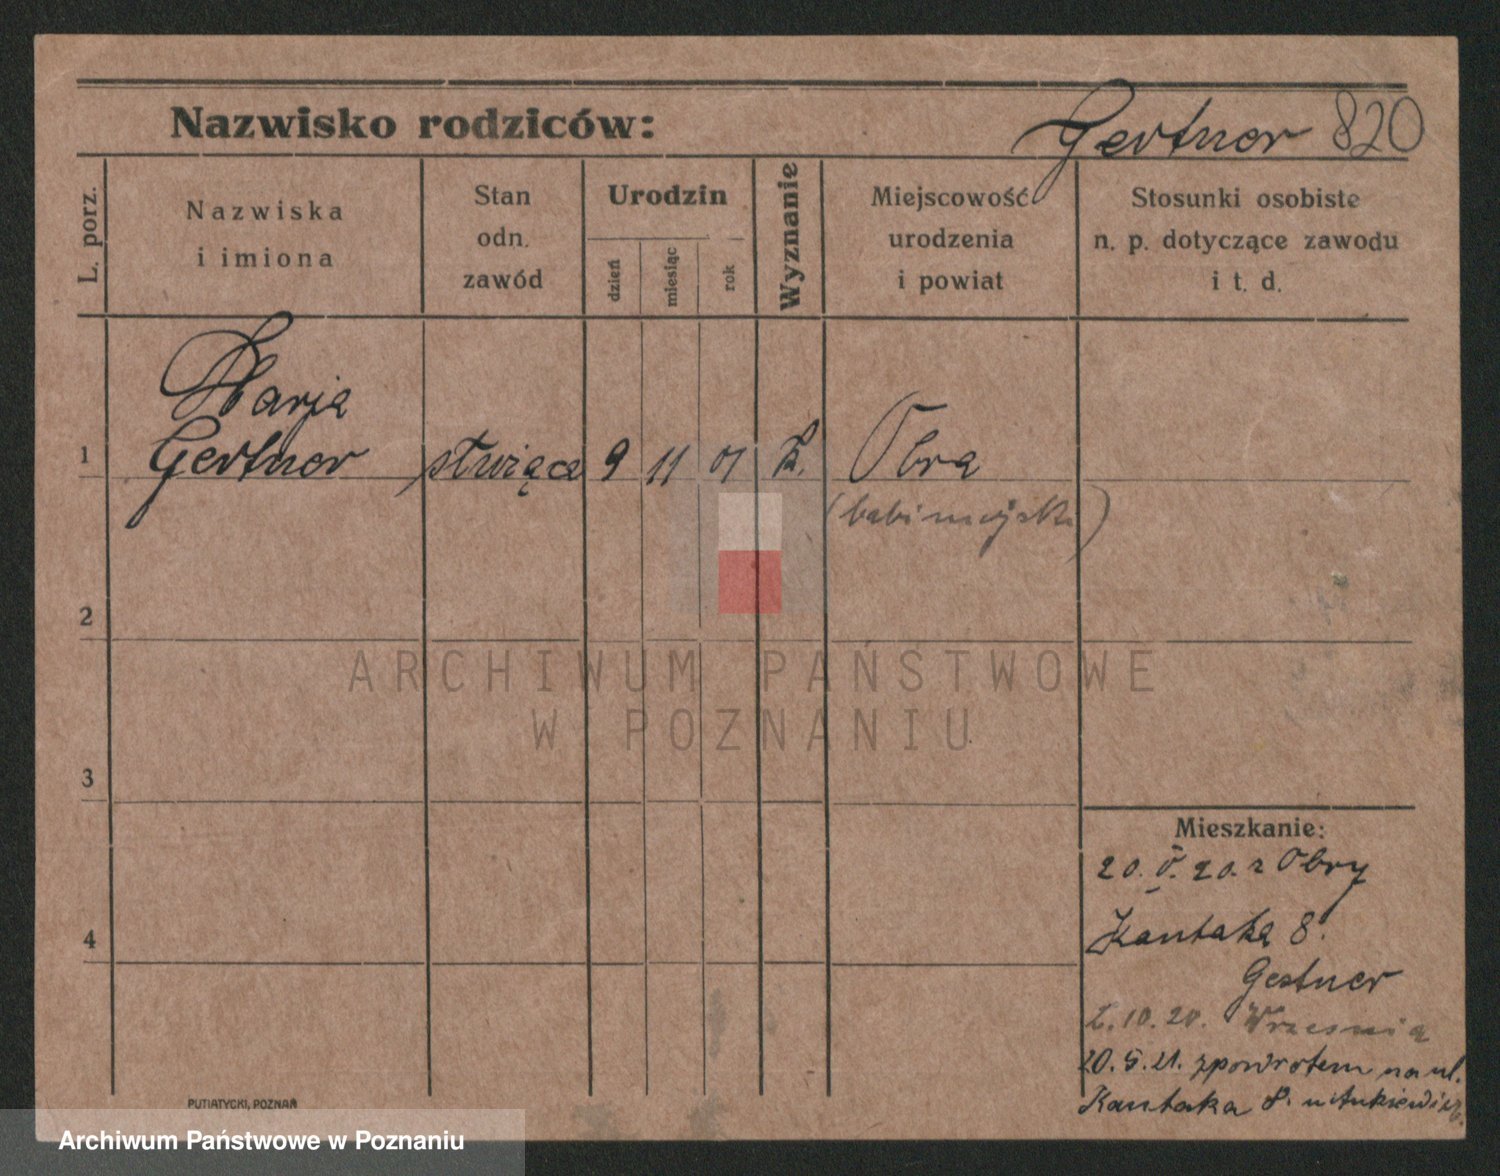 Nazwisko rodziców: Gertner 820
L. porz.
Nazwiska
i imiona
Stan
odn.
zawód
Urodzin
dzień
miesiąc
rok
Wyznanie
Miejscowość
urodzenia
i powiat
Stosunki osobiste
n. p. dotyczące zawodu
i t. d.
Marja
1 Gertner służąca 9 11 01 k. Obra
(babimojski)
2
3
4
Mieszkanie:
20. V. 20. z Obry
Kantaka 8.
Gestner
1.10.20. Września
20.5.21. zpowrotem na ul.
Kantaka 8. u
PUTIATYCKI, POZNAŃ
ARCHIWUM PAŃSTWOWE
W POZNANIU
Archiwum Państwowe w Poznaniu